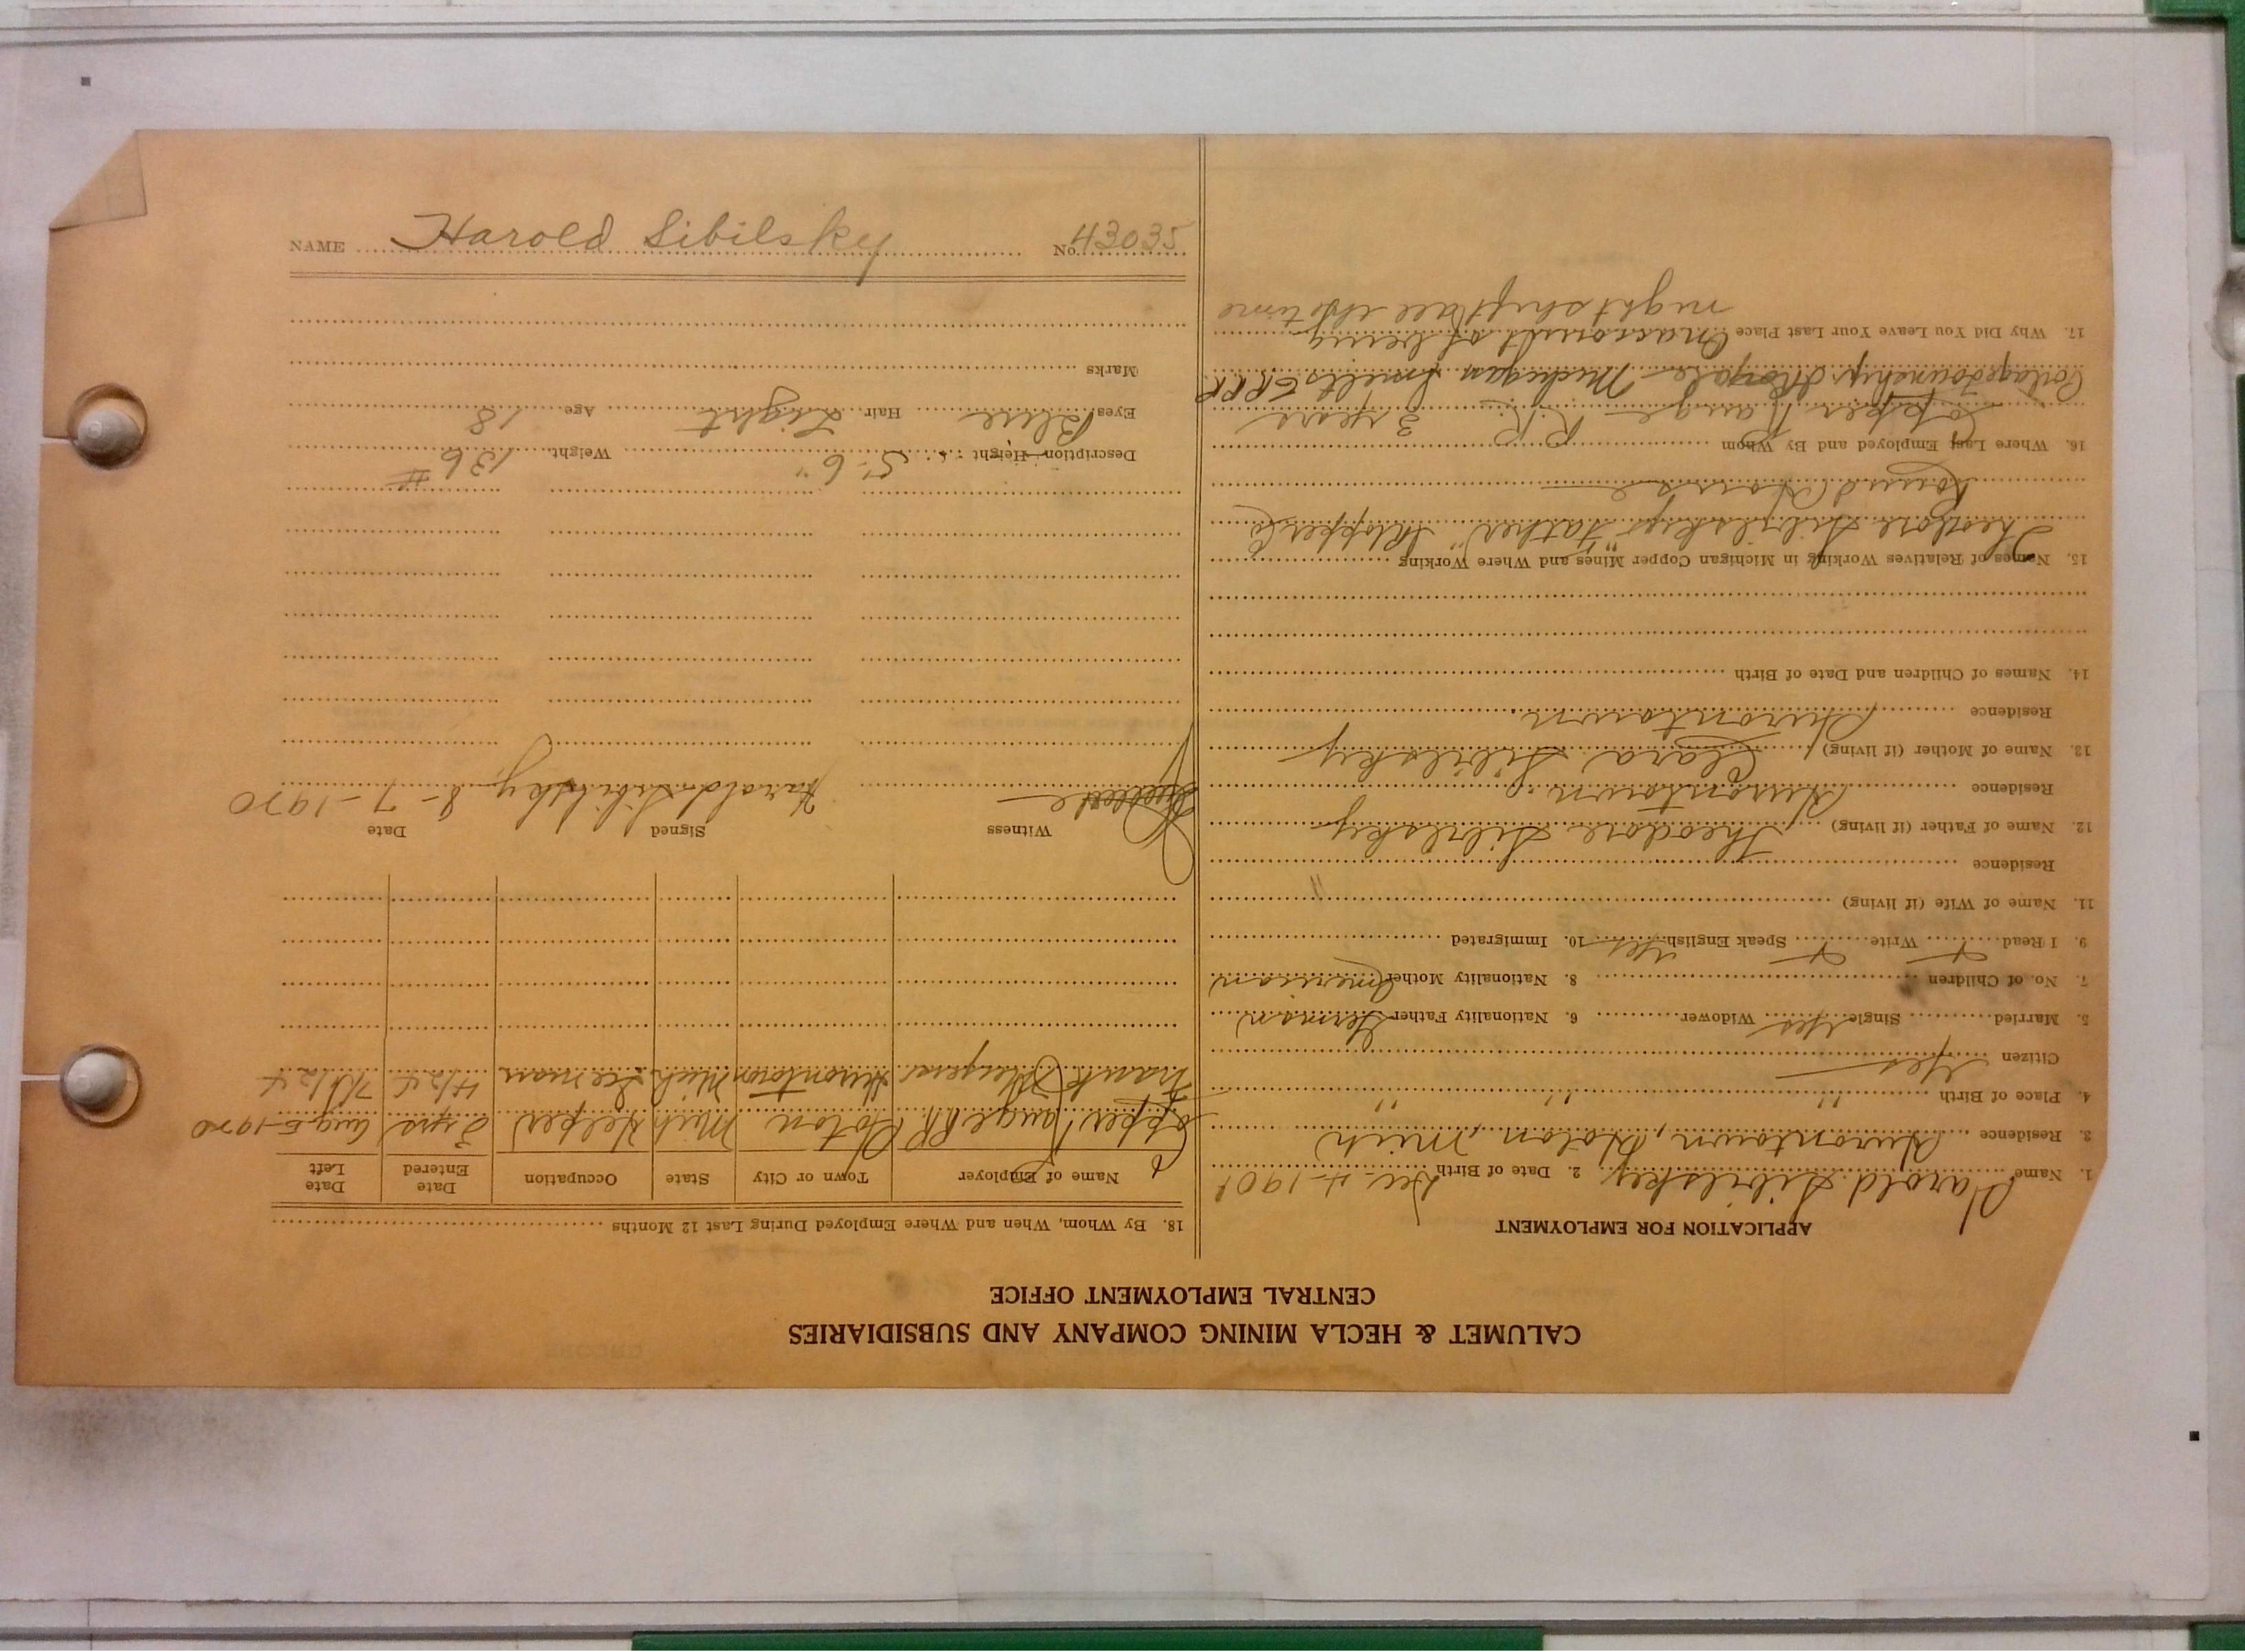 CALUMET & HECLA MINING COMPANY AND SUBSIDIARIES
CENTRAL EMPLOYMENT OFFICE
APPLICATION FOR EMPLOYMENT
1. Name Harold Sibilsky 2. Date of Birth Dec-4-1901
3. Residence Hurontown, Hoton, Mich
4. Place of Birth " " "
Citizen Yes
5. Married Single Yes Widower 6. Nationality Father German
7. No. of Children 8. Nationality Mother American
9. I Read Write Speak English Yes 10. Immigrated
11. Name of Wife (if living) "
Residence
12. Name of Father (if living) Theodore Sibilsky
Residence Hurontown.
13. Name of Mother (if living) Clara Sibilsky
Residence Hurontown.
14. Names of Children and Date of Birth
15. Names of Relatives Working in Michigan Copper Mines and Where Working
Theodore Sibilsky "Father"
Round House
16. Where Last Employed and By Whom
Copper Range R.R. 3 years
Portage Township, Royale Michigan Smelts
17. Why Did You Leave Your Last Place On account of being
night shift all the time
18. By Whom, When and Where Employed During Last 12 Months
Name of Employer Town or City State Occupation Date Entered Date Left
Copper Range RR Hoton Mich Helper 3 yrs Aug 5-1920
Frank Hurontown Mich
Witness Signed Date
Harold Sibilsky 8-7-1920
Description—Height 5-6" Weight 136 #
Eyes Blue Hair Light Age 18
Marks
NAME Harold Sibilsky No. 43035